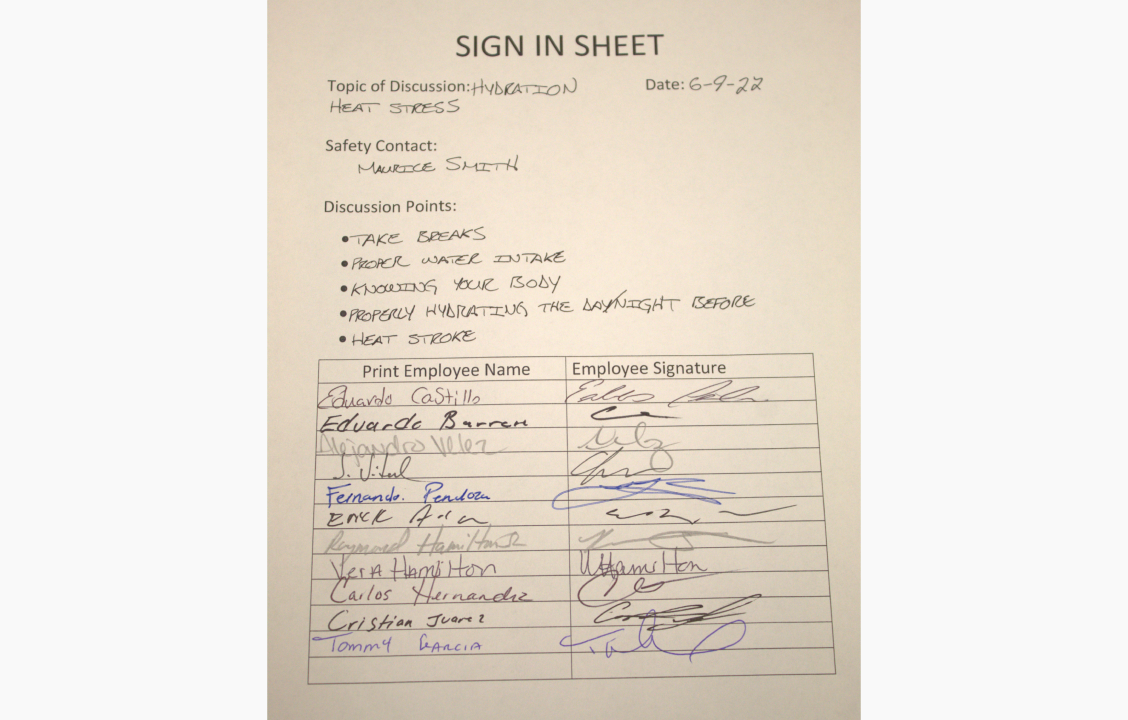 SIGN IN SHEET
Topic of Discussion: HYDRATION Date: 6-9-22
HEAT STRESS
Safety Contact:
MAURICE SMITH
Discussion Points:
• TAKE BREAKS
• PROPER WATER INTAKE
• KNOWING YOUR BODY
• PROPERLY HYDRATING THE DAY/NIGHT BEFORE
• HEAT STROKE
Print Employee Name Employee Signature
Eduardo Castillo
Eduardo
Alejandro Velez
J.
Fernando.
Erick
Raymond Hamilton Jr
Vera Hamilton VHamilton
Carlos Hernandez
Cristian Juarez
Tommy Garcia